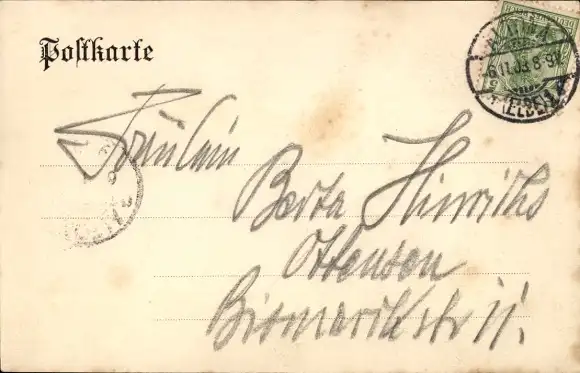 Postkarte
6.11.03 8-9V
Fräulein
Berta Hinrichs
Ottensen
Bismarckstr 11.